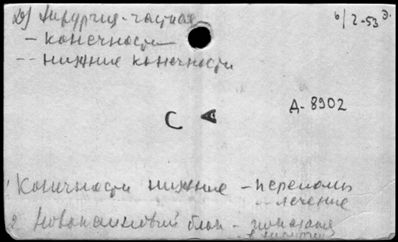 Д) Хирургия - частная
6/2-53 э.
- конечности
-- нижние конечности
С А
Д-8902
1 Конечности нижние - переломы
- лечение
2 Новокаиновый блок -